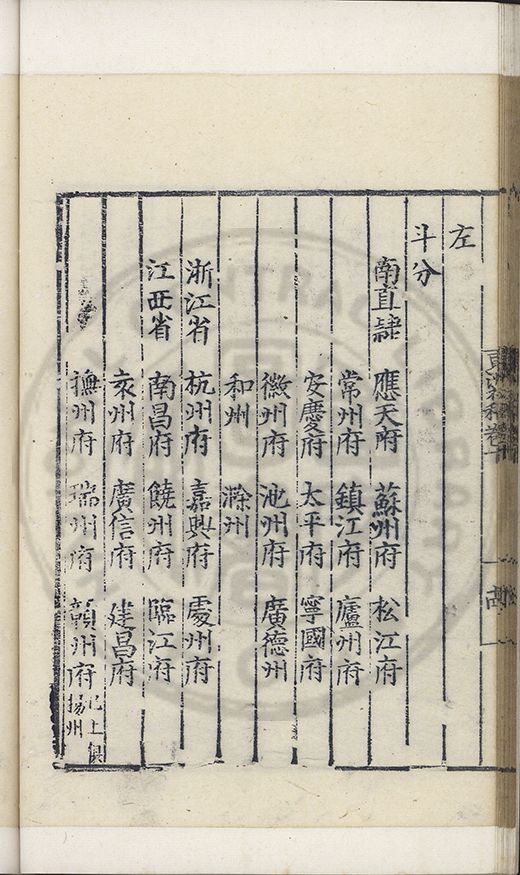 左
斗分
南直隸 應天府 蘇州府 松江府
常州府 鎮江府 廬州府
安慶府 太平府 寧國府
徽州府 池州府 廣德州
和州 滁州
浙江省 杭州府 嘉興府 處州府
江西省 南昌府 饒州府 臨江府
袁州府 廣信府 建昌府
撫州府 瑞州府 贛州府 已上俱揚州